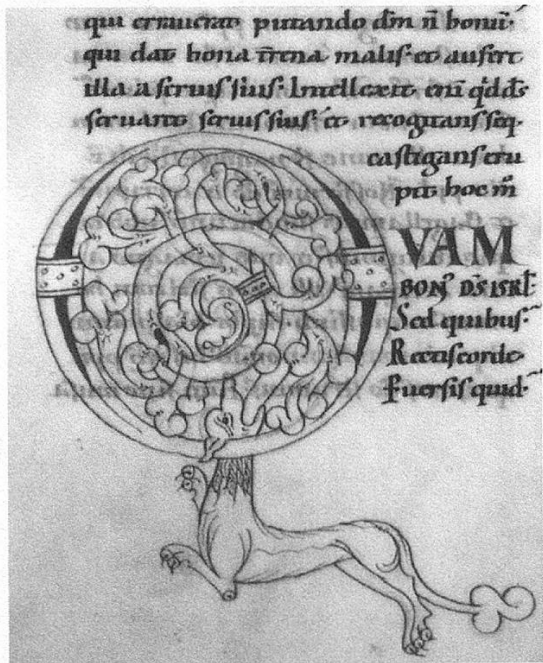 qui erraverat putando dm̄ n̄ bonū·
qui dat bona t̄rena malis· et aufert
illa a servis suis· Intellexit enī qd̄ ds̄
servavit servis suis· et recogitans seq
castigans eru
pit hoc m̄
QVAM
BON' DS̄ ISRL̄·
Sed quibus·
Recti s corde·
 versis quid·